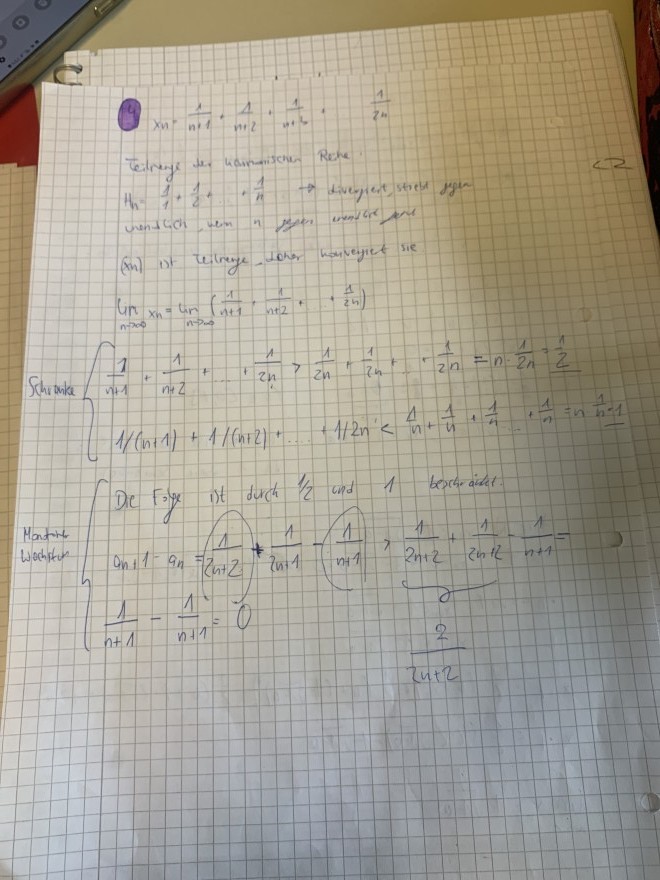 4 xn = 1/(n+1) + 1/(n+2) + 1/(n+3) + 1/2n
Teilmenge der harmonischen Reihe.
Hn = 1/1 + 1/2 + ... + 1/n → divergiert, strebt gegen
unendlich, wenn n gegen unendlich
(xn) ist Teilmenge, daher konvergiert sie
lim n→∞ xn = lim n→∞ (1/(n+1) + 1/(n+2) + ... + 1/2n)
Schranke
1/(n+1) + 1/(n+2) + ... + 1/2n > 1/2n + 1/2n + ... + 1/2n = n · 1/2n = 1/2
1/(n+1) + 1/(n+2) + ... + 1/2n < 1/n + 1/n + 1/n ... + 1/n = n · 1/n = 1
Die Folge ist durch 1/2 und 1 beschränkt.
Wachstum
an+1 - an = 1/(2n+2) + 1/(2n+1) - 1/(n+1) > 1/(2n+2) + 1/(2n+2) - 1/(n+1) =
1/(n+1) - 1/(n+1) = 0
2/(2n+2)